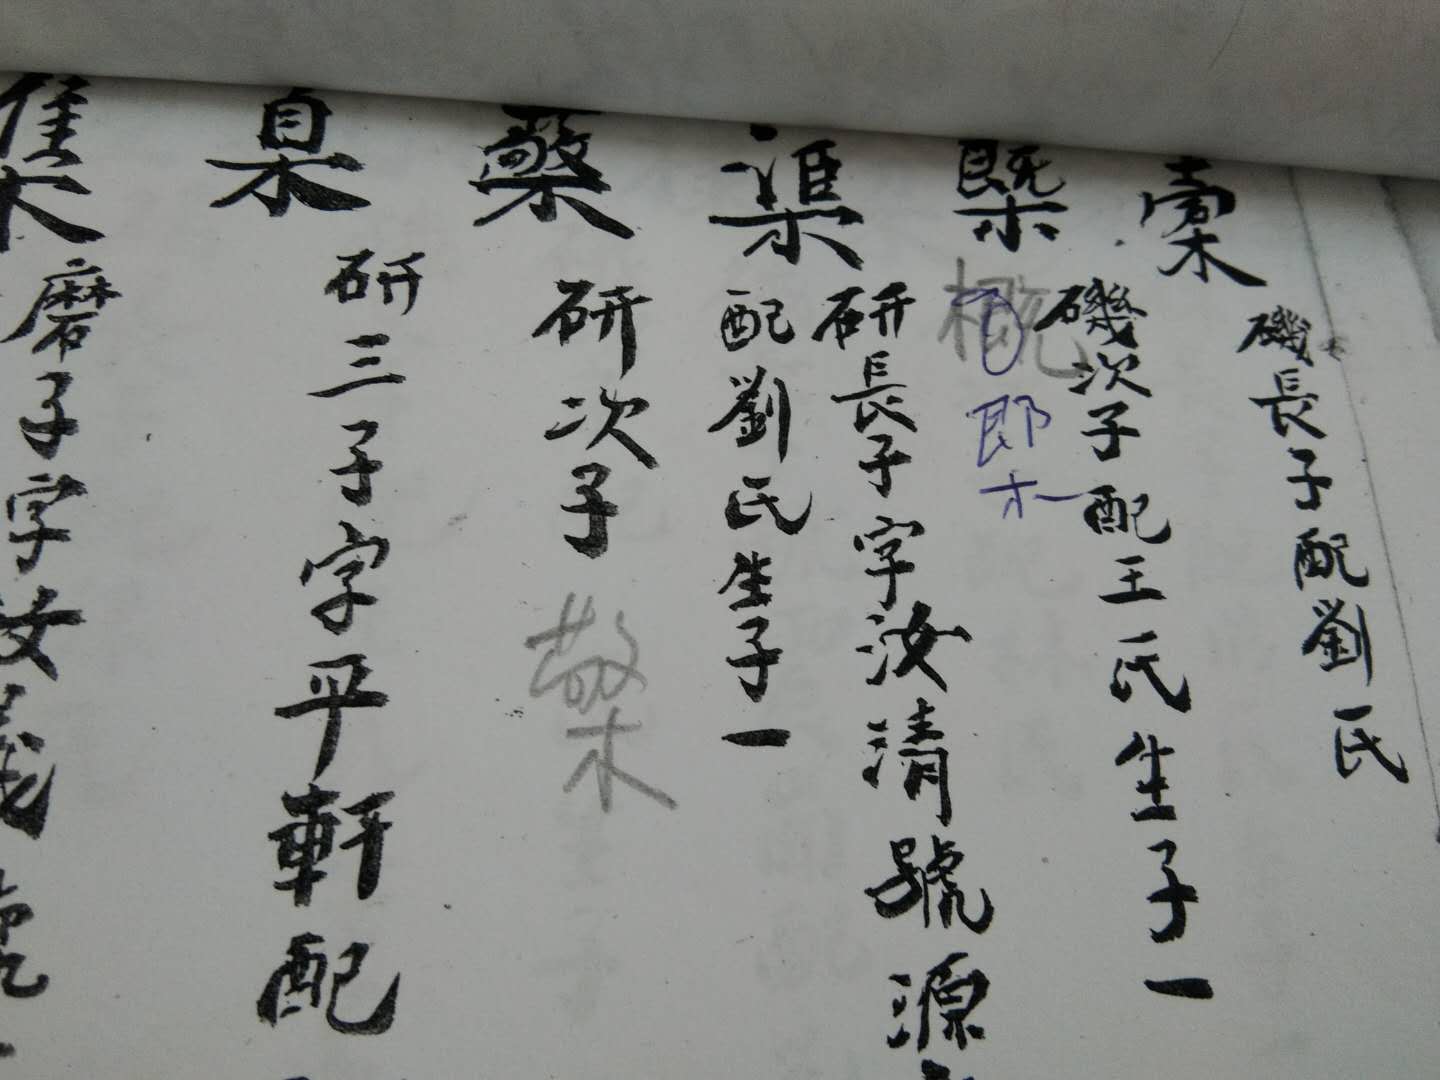 槖
磯長子配劉氏
槩
磯次子配王氏生子一
概
即
木
渠
研長子字汝清號源
配劉氏生子一
檠
研次子
檠
臬
研三子字平軒配
集
磨子字汝義號